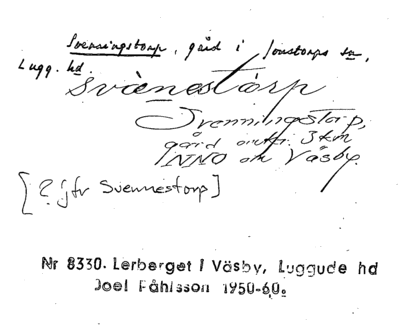 Svenningstorp, gård i Jonstorps sn,
Lugg. hd.
svænestårp
Svenningstorp,
gård omkr. 3 km
NNO om Väsby.
[? jfr Svennestorp]
Nr 8330. Lerberget i Väsby, Luggude hd
Joel Påhlsson 1950-60.